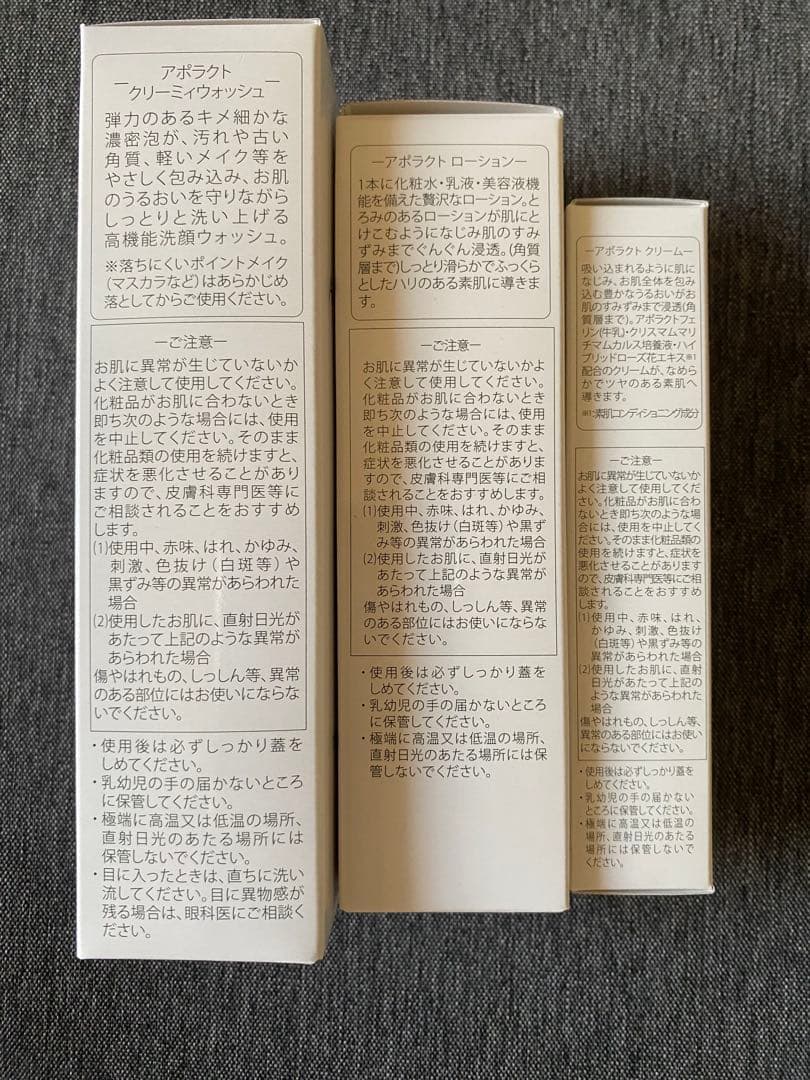 アポラクト
クリーミィウォッシュ
弾力のあるキメ細かな
濃密泡が、汚れや古い
角質、軽いメイク等を
やさしく包み込み、お肌
のうるおいを守りながら
しっとりと洗い上げる
高機能洗顔ウォッシュ。
※落ちにくいポイントメイク
(マスカラなど)はあらかじめ
落としてからご使用ください。
ーご注意ー
お肌に異常が生じていないか
よく注意して使用してください。
化粧品がお肌に合わないとき
即ち次のような場合には、使用
を中止してください。そのまま
化粧品類の使用を続けますと、
症状を悪化させることがあり
ますので、皮膚科専門医等に
ご相談されることをおすすめ
します。
(1)使用中、赤味、はれ、かゆみ、
刺激、色抜け(白斑等)や
黒ずみ等の異常があらわれた
場合
(2)使用したお肌に、直射日光が
あたって上記のような異常が
あらわれた場合
傷やはれもの、しっしん等、異常
のある部位にはお使いにならな
いでください。
・使用後は必ずしっかり蓋を
しめてください。
・乳幼児の手の届かないところ
に保管してください。
・極端に高温又は低温の場所、
直射日光のあたる場所には
保管しないでください。
・目に入ったときは、直ちに洗い
流してください。目に異物感が
残る場合は、眼科医にご相談く
ださい。
ーアポラクト ローションー
1本に化粧水・乳液・美容液機
能を備えた贅沢なローション。と
ろみのあるローションが肌にと
けこむようになじみ肌のすみ
ずみまでぐんぐん浸透。(角質
層まで)しっとり滑らかでふっくら
としたハリのある素肌に導きま
す。
ーご注意ー
お肌に異常が生じていないかよ
く注意して使用してください。
化粧品がお肌に合わないとき
即ち次のような場合には、使用
を中止してください。そのまま
化粧品類の使用を続けますと、
症状を悪化させることがありま
すので、皮膚科専門医等にご相
談されることをおすすめします。
(1)使用中、赤味、はれ、かゆみ、
刺激、色抜け(白斑等)や黒ず
み等の異常があらわれた場合
(2)使用したお肌に、直射日光が
あたって上記のような異常が
あらわれた場合
傷やはれもの、しっしん等、異常
のある部位にはお使いにならない
でください。
・使用後は必ずしっかり蓋を
しめてください。
・乳幼児の手の届かないところ
に保管してください。
・極端に高温又は低温の場所、
直射日光のあたる場所には保
管しないでください。
ーアポラクト クリームー
吸い込まれるように肌に
なじみ、お肌全体を包み
込む豊かなうるおいがお
肌のすみずみまで浸透(角
質層まで)。アポラクトフェ
リン(牛乳)・クリスマムマリ
チマムカルス培養液・ハイ
ブリッドローズ花エキス※1
配合のクリームが、なめら
かでツヤのある素肌へ
導きます。
※1:素肌コンディショニング成分
ーご注意ー
お肌に異常が生じていないか
よく注意して使用してくだ
さい。化粧品がお肌に合わ
ないとき即ち次のような場
合には、使用を中止してくだ
さい。そのまま化粧品類の
使用を続けますと、症状を
悪化させることがあります
ので、皮膚科専門医等にご相
談されることをおすすめし
ます。
(1)使用中、赤味、はれ、
かゆみ、刺激、色抜け
(白斑等)や黒ずみ等の
異常があらわれた場合
(2)使用したお肌に、直射
日光があたって上記の
ような異常があらわれた
場合
傷やはれもの、しっしん等、
異常のある部位にはお使い
にならないでください。
・使用後は必ずしっかり蓋を
しめてください。
・乳幼児の手の届かない
ところに保管してください。
・極端に高温又は低温の
場所、直射日光のあたる
場所には保管しないで
ください。